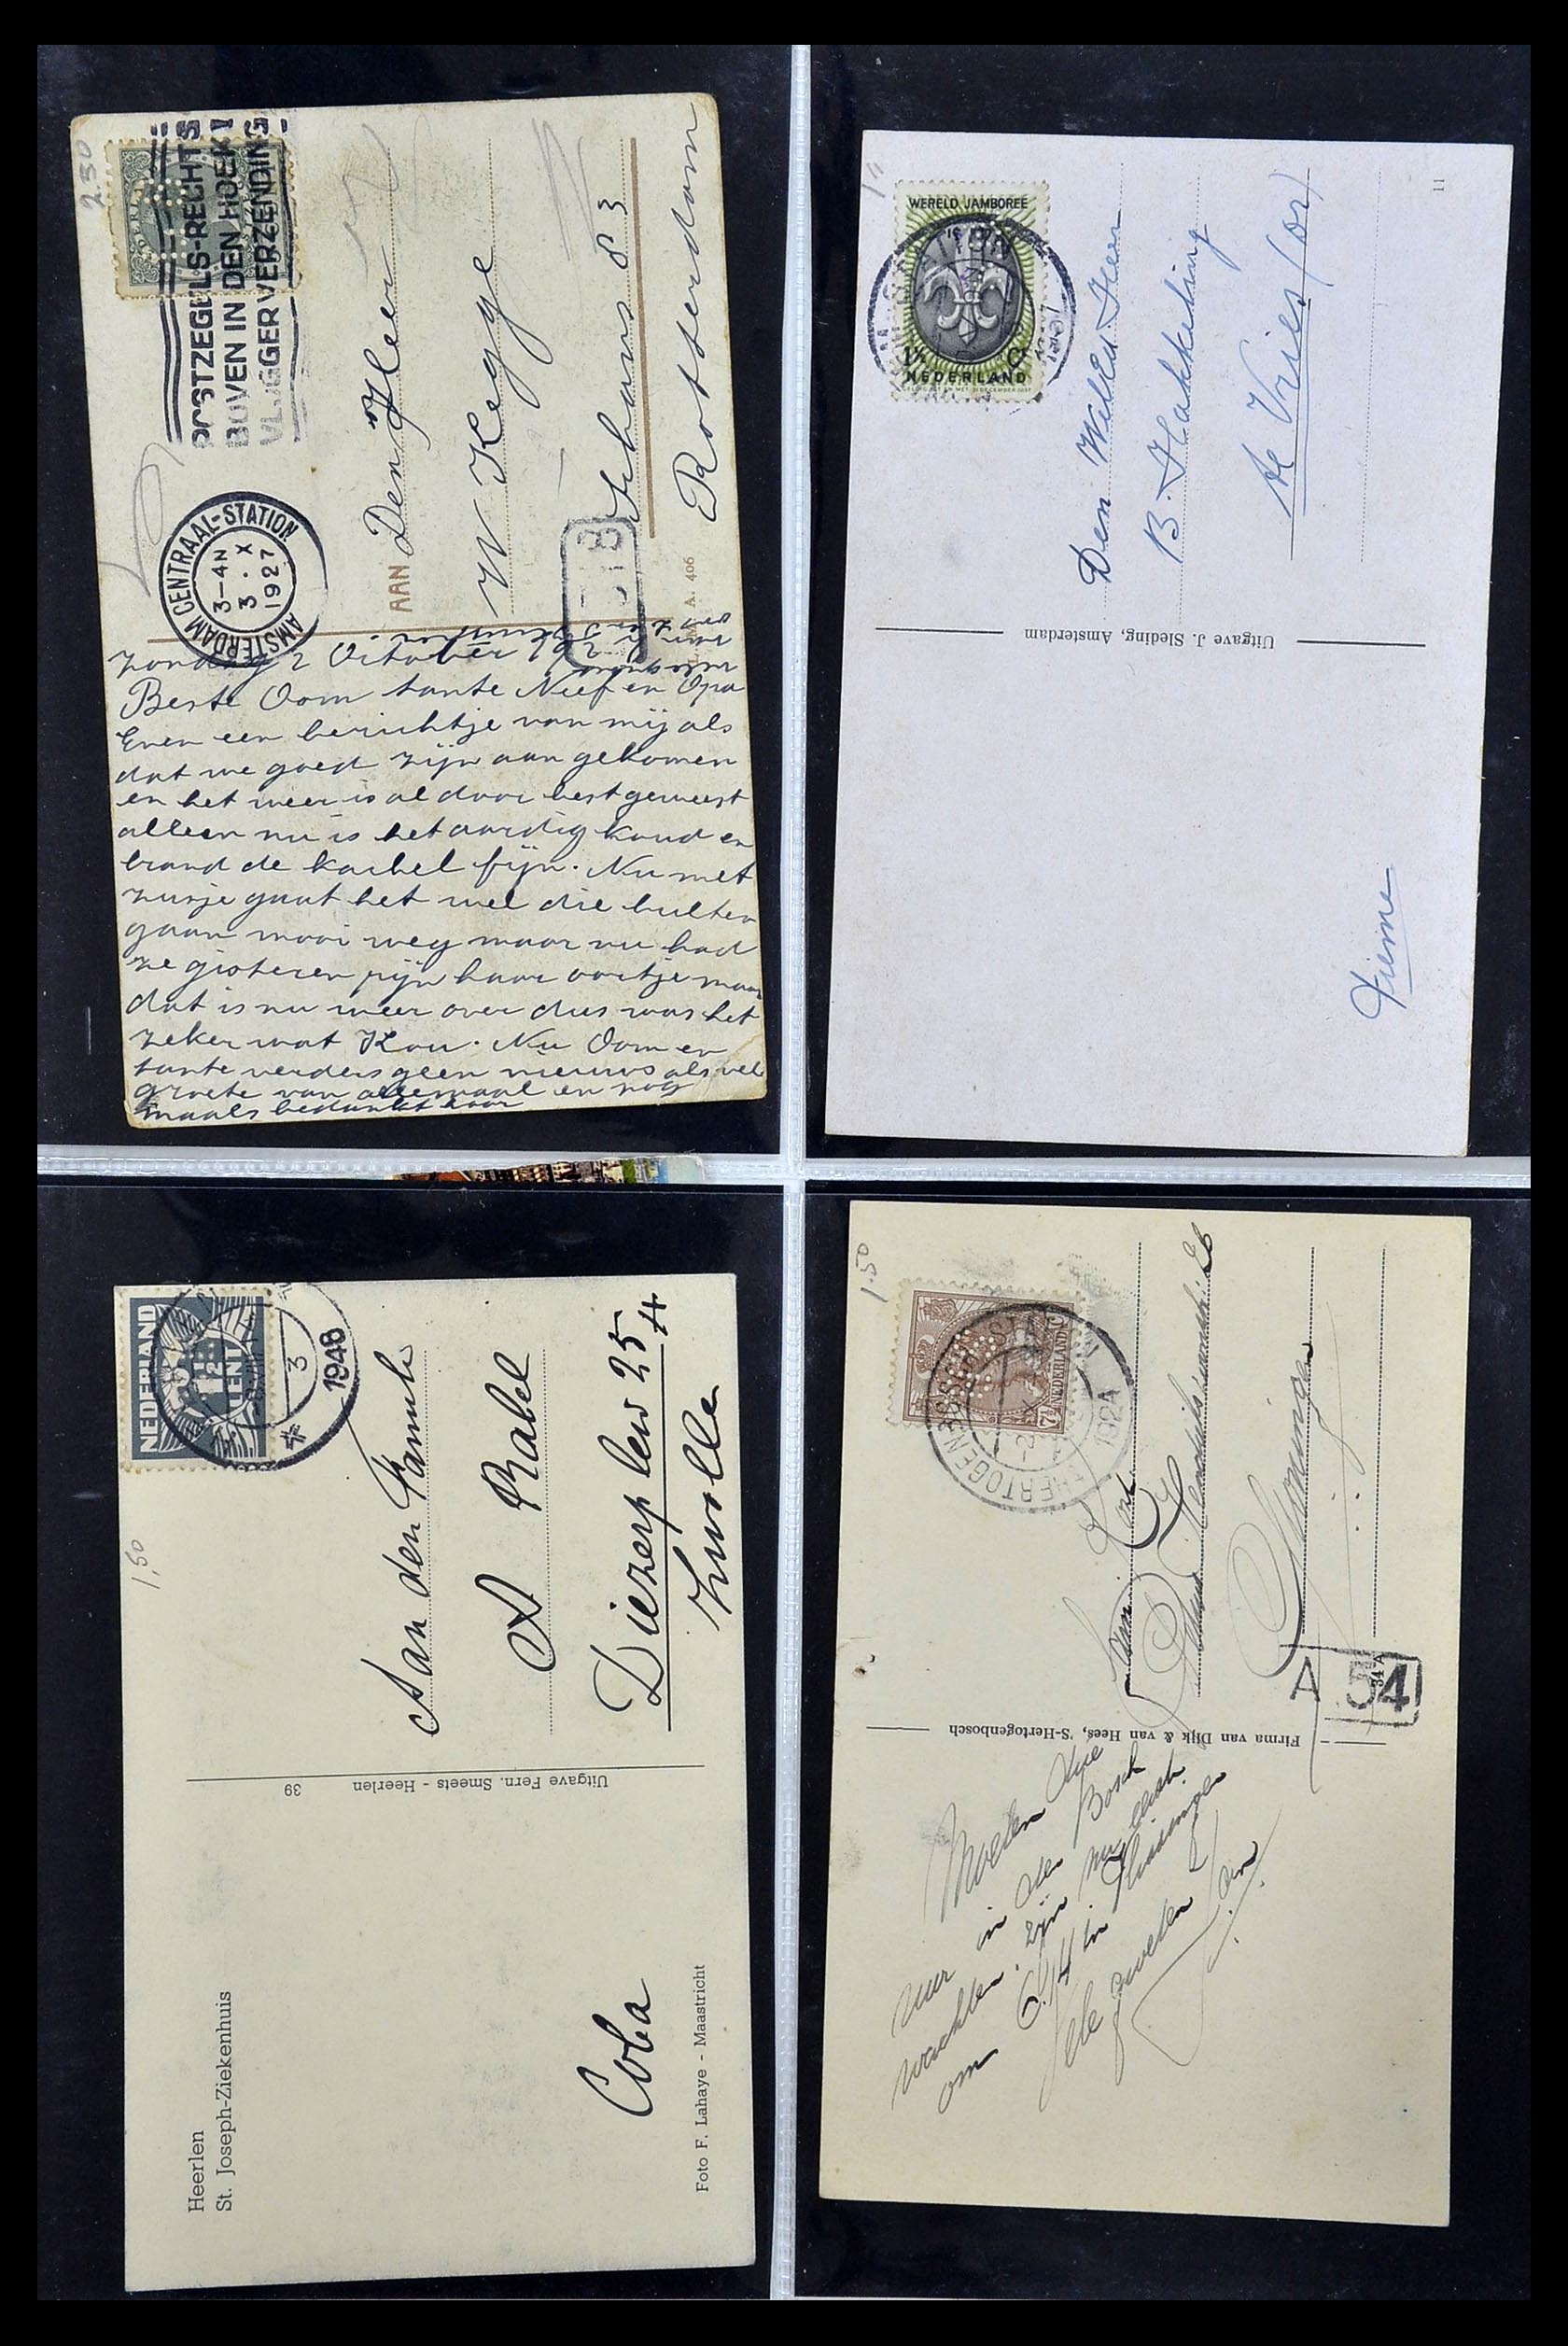 2.50
POSTZEGELS-RECHTS
BOVEN IN DEN HOEK!
VLUGGER VERZENDING
AMSTERDAM CENTRAAL-STATION
3-4N
3.X
1927
AAN Den Heer
W Kegge
Schans 83
Rotterdam
A. 406
Zondag 2 October 192
Beste Oom tante Neef en Opa
Even een berichtje van mij als
dat we goed zijn aan gekomen
en het weer is al door best geweest
alleen nu is het aardig koud en
brand de kachel fijn. Nu met
zusje gaat het wel die bulten
gaan mooi weg maar nu had
ze gisteren pijn haar oortje maar
dat is nu weer over dus was het
zeker wat Kou. Nu Oom en
tante verders geen nieuws als veel
groete van allemaal en nog
maals bedankt hoor
WERELD JAMBOREE
NEDERLAND
Den Heer
B. Hakketing
de Vries
11
Uitgave J. Sleding, Amsterdam
1,50
NEDERLAND
CENT
3
1948
Aan den Familie
A Rabel
Diezerplein 25
Zwolle
39
Uitgave Fern. Smeets - Heerlen
Heerlen
St. Joseph-Ziekenhuis
Coba
Foto F. Lahaye - Maastricht
1.50
7½
NEDERLAND
1924
Groningen
A 54
Firma van Dijk & van Hees, 'S-Hertogenbosch
Moeten drie
uur in den Bosch
wachten. zijn
om 6.14 in Vlissingen